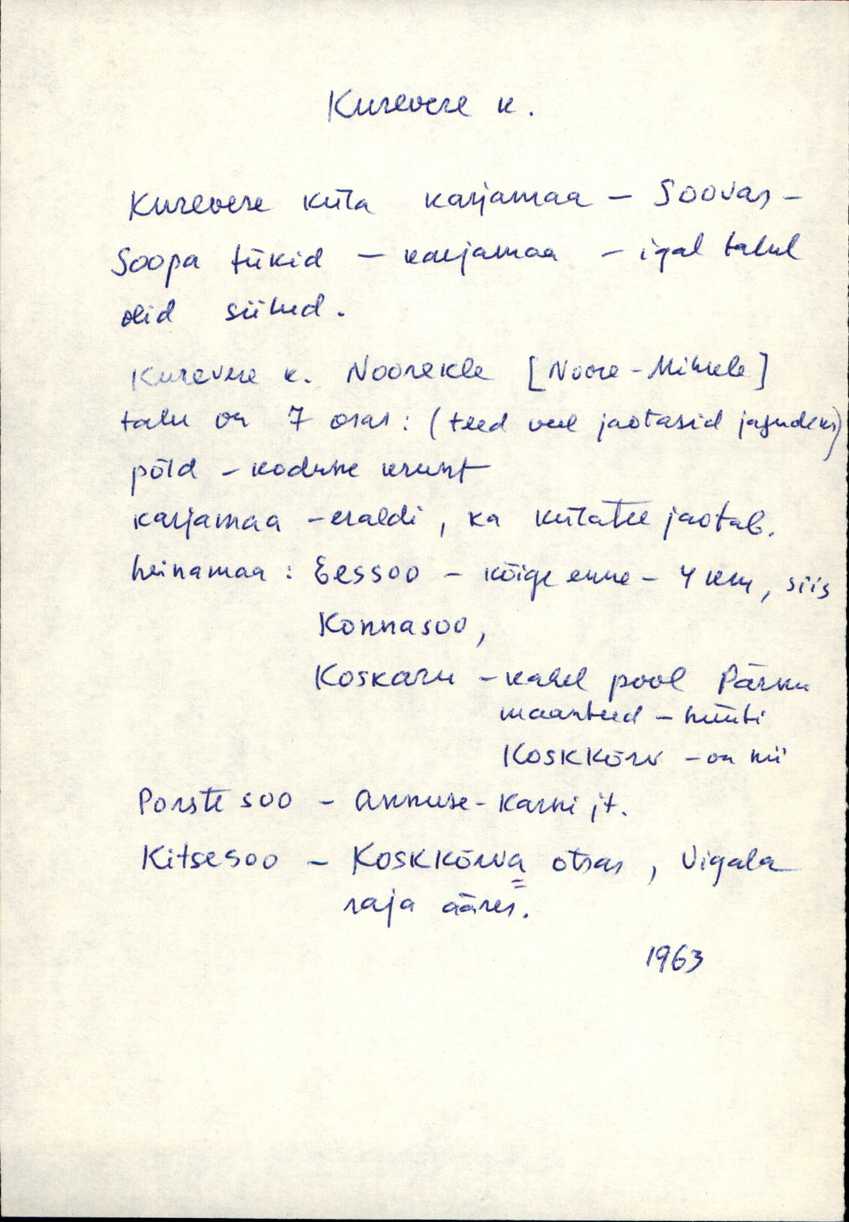 Kurevere k.
Kurevere küla karjamaa – Soovas –
Soopa tükid – karjamaa – igal talul
olid siilud.
Kurevere k. Noorekle [Noore-Mihkle]
talu on 7 osas: (teed veel jaotasid jagudeks)
põld – kodune krunt
karjamaa – eraldi, ka külatee jaotab.
heinamaa: Eessoo – kõige enne – 4 km, siis
Konnasoo,
Koskaru – kahel pool Pärnu
maanteed – hüüti
Koskkõrv – on nii
Porste soo – Annuse-Karni jt.
Kitsesoo – Koskkõrva otsas, Vigala
raja ääres.
1963